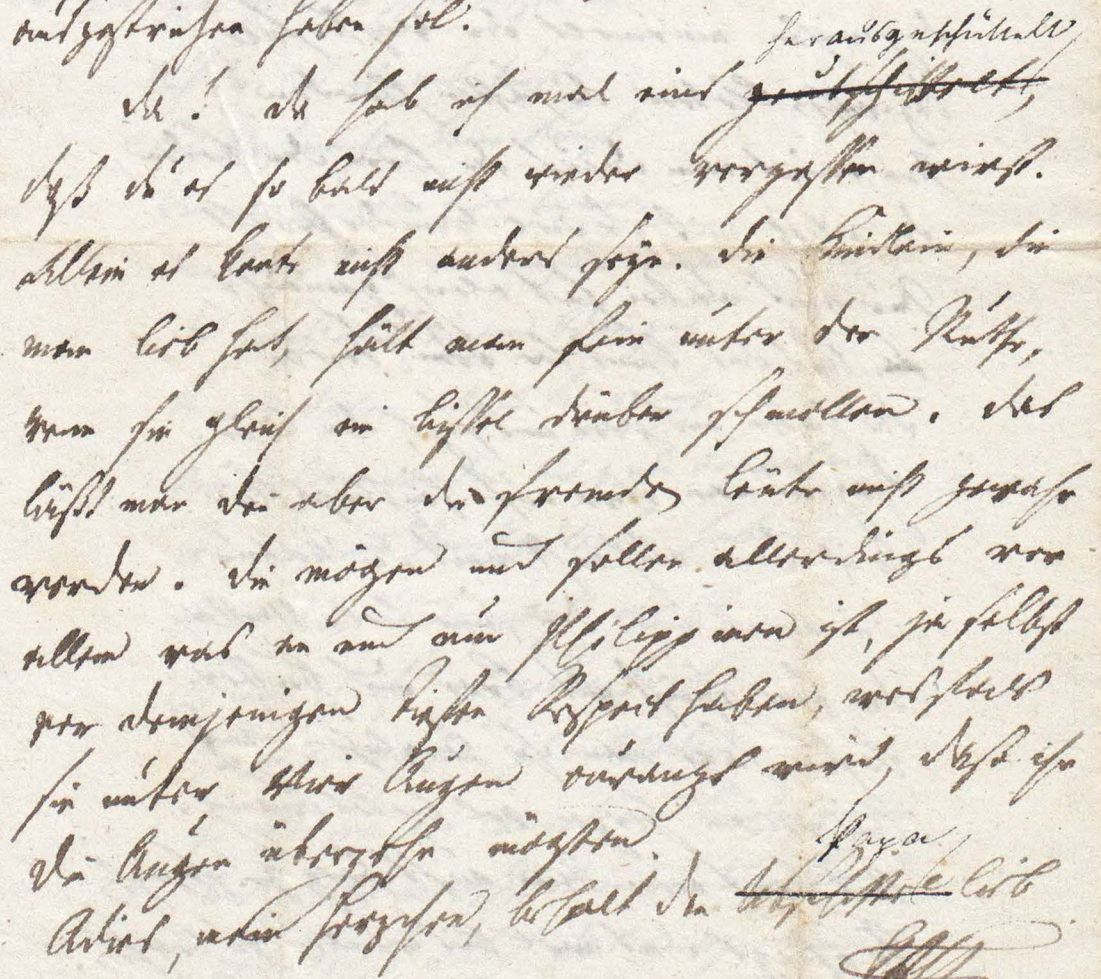 ausgestrichen haben sol.
herausgeschüttelt,
da! da hab ich mal eins
daß du es so bald nicht wieder vergessen wirst.
Allein es konte nicht anders seyn. Die Kindlein, die
man lieb hat, hält man fein unter der Ruthe,
wenn sie gleich ein bissel drüber schmollen. Das
läßt man die aber die fremden Leute nicht gewahr
werden. Die mögen und sollen allerdings vor
allem was an und um Philippinen ist, ja selbst
vor demjenigen tiefen Respect haben, weshalb
sie unter vier Augen wird, daß ihr
die Augen übergehn mögten.
Papa
Adies, mein Herzchen, behalt den lieb